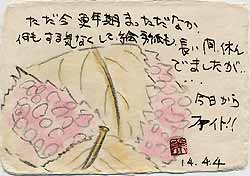 ただ今 更年期まっただなか
何もする気なくして絵手紙も
長い間、休ん
でましたが
・・・
今日から
ファイト!!
14.4.4